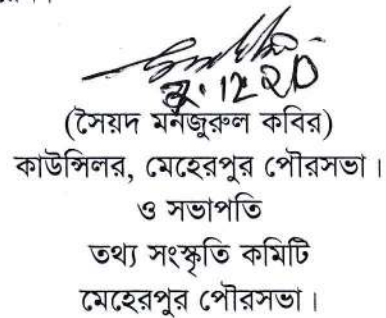 2.12.20
(সৈয়দ মনজুরুল কবির)
কাউন্সিলর, মেহেরপুর পৌরসভা।
ও সভাপতি
তথ্য সংস্কৃতি কমিটি
মেহেরপুর পৌরসভা।